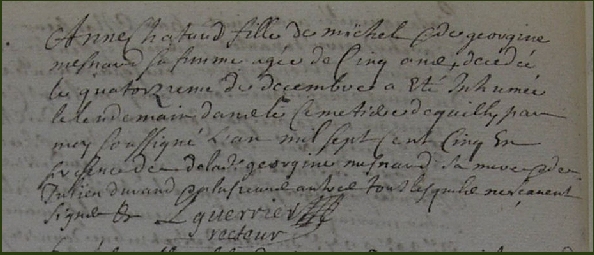 Anne Chatard fille de michel & de georgine
mesnard sa femme agée de Cinq ans decedée
le quatorzieme de decembre a Eté Inhumée
le lendemain dans le Cemetiere de quilly par
moy soussigné L'an mil sept cent Cinq En
presence de georgine mesnard sa mere & de
Julien durand & plusieurs autres tous lesquels ne scavent
signer &
L guerrier
recteur